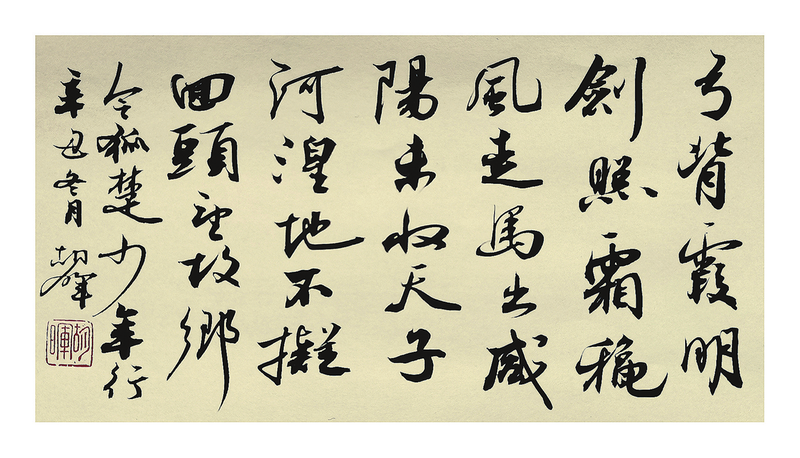 弓背霞明
劍照霜穐
風走馬出咸
陽未收天子
河湟地不擬
回頭望故鄉
令狐楚少年行
辛丑冬月 胡暉
胡暉